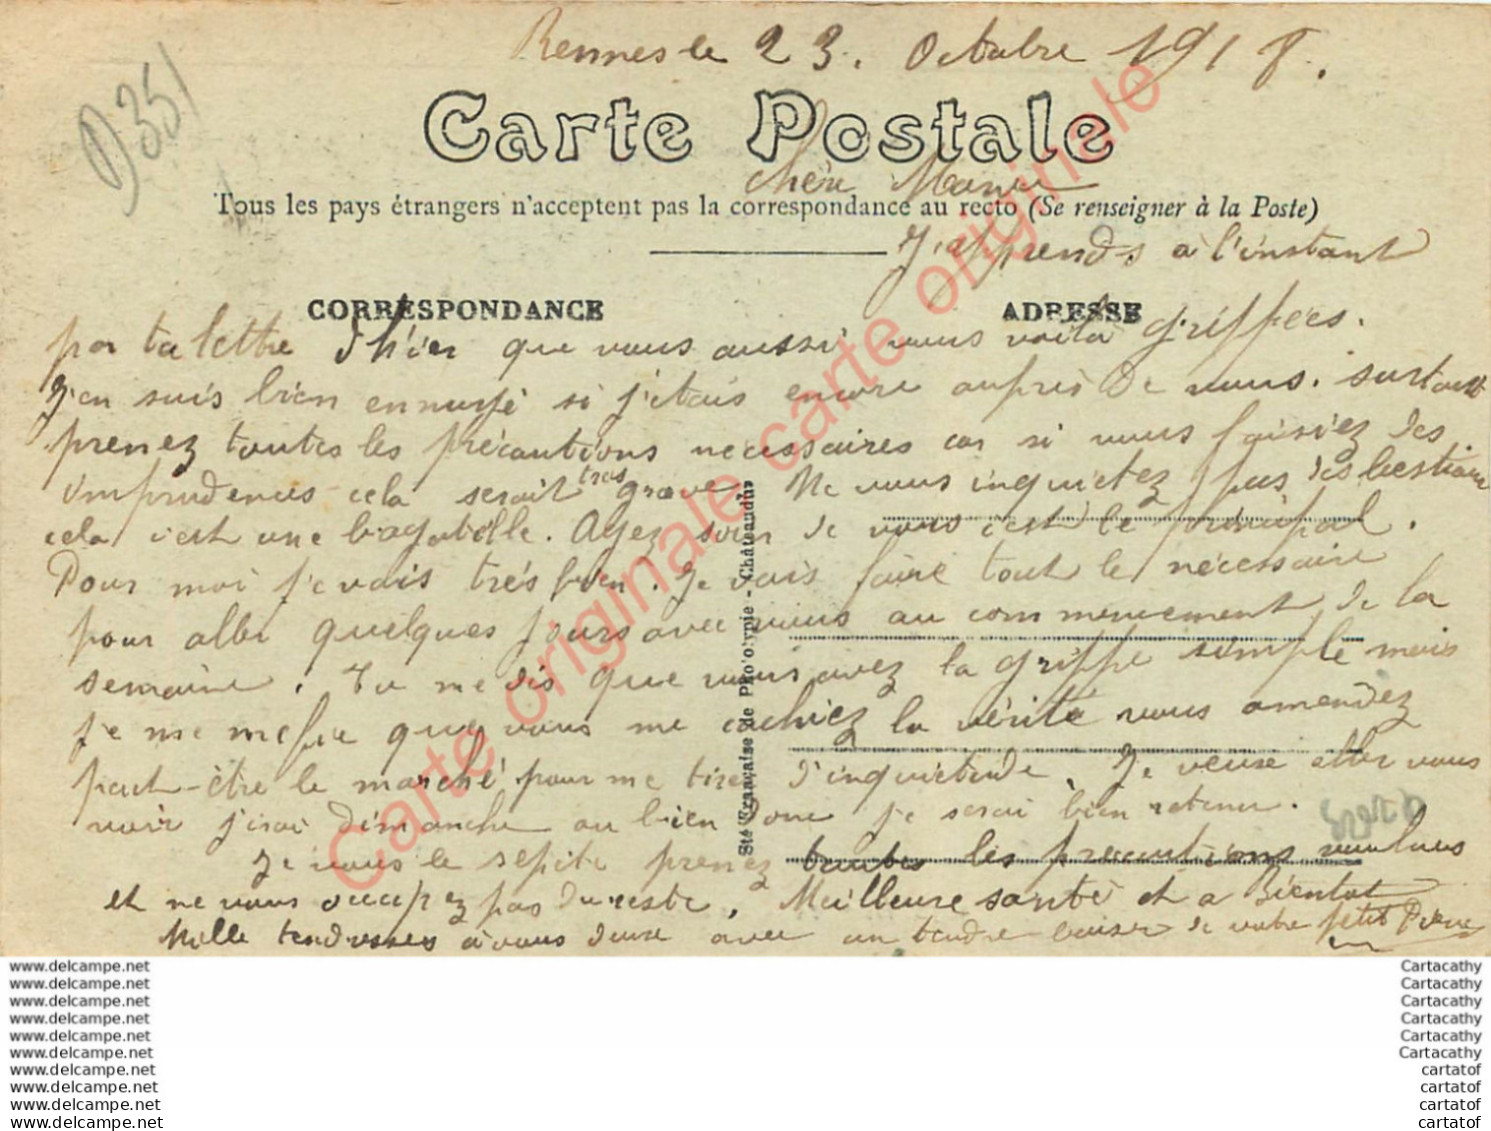 Rennes le 23. Octobre 1918.
D351
Carte Postale
Chère Maman
Tous les pays étrangers n'acceptent pas la correspondance au recto (Se renseigner à la Poste)
J'apprends à l'instant
CORRESPONDANCE
ADRESSE
par ta lettre d'hier que vous aussi vous voilà grippées.
J'en suis bien ennuyé si j'étais encore auprès de vous. surtout
prenez toutes les précautions nécessaires car si vous faisiez des
imprudences cela serait très grave. Ne vous inquietez pas des bestiaux
cela c'est une bagatelle. Ayez soin de vous c'est le principal.
Pour moi je vais très bien. Je vais faire tout le nécessaire
pour aller quelques jours avec vous au commencement de la
semaine. Tu me dis que vous avez la grippe simple mais
je me mefie que vous me cachiez la vérité vous amendez
peut-être le marché pour me tirer d'inquietude. Je veux aller vous
voir j'irai dimanche ou bien donc je serai bien retenu.
Je vous le répète prenez toutes les précautions voulues
et ne vous occupez pas du reste. Meilleure santé et a Bientot
Mille tendresses à vous deux avec un tendre baiser de votre petit Pierre
Sté Française de Phototypie - Châteaudun
Carte originale carte originale carte originale
www.delcampe.net
www.delcampe.net
www.delcampe.net
www.delcampe.net
www.delcampe.net
www.delcampe.net
www.delcampe.net
www.delcampe.net
www.delcampe.net
www.delcampe.net
Cartacathy
Cartacathy
Cartacathy
Cartacathy
Cartacathy
Cartacathy
cartatof
cartatof
cartatof
cartatof